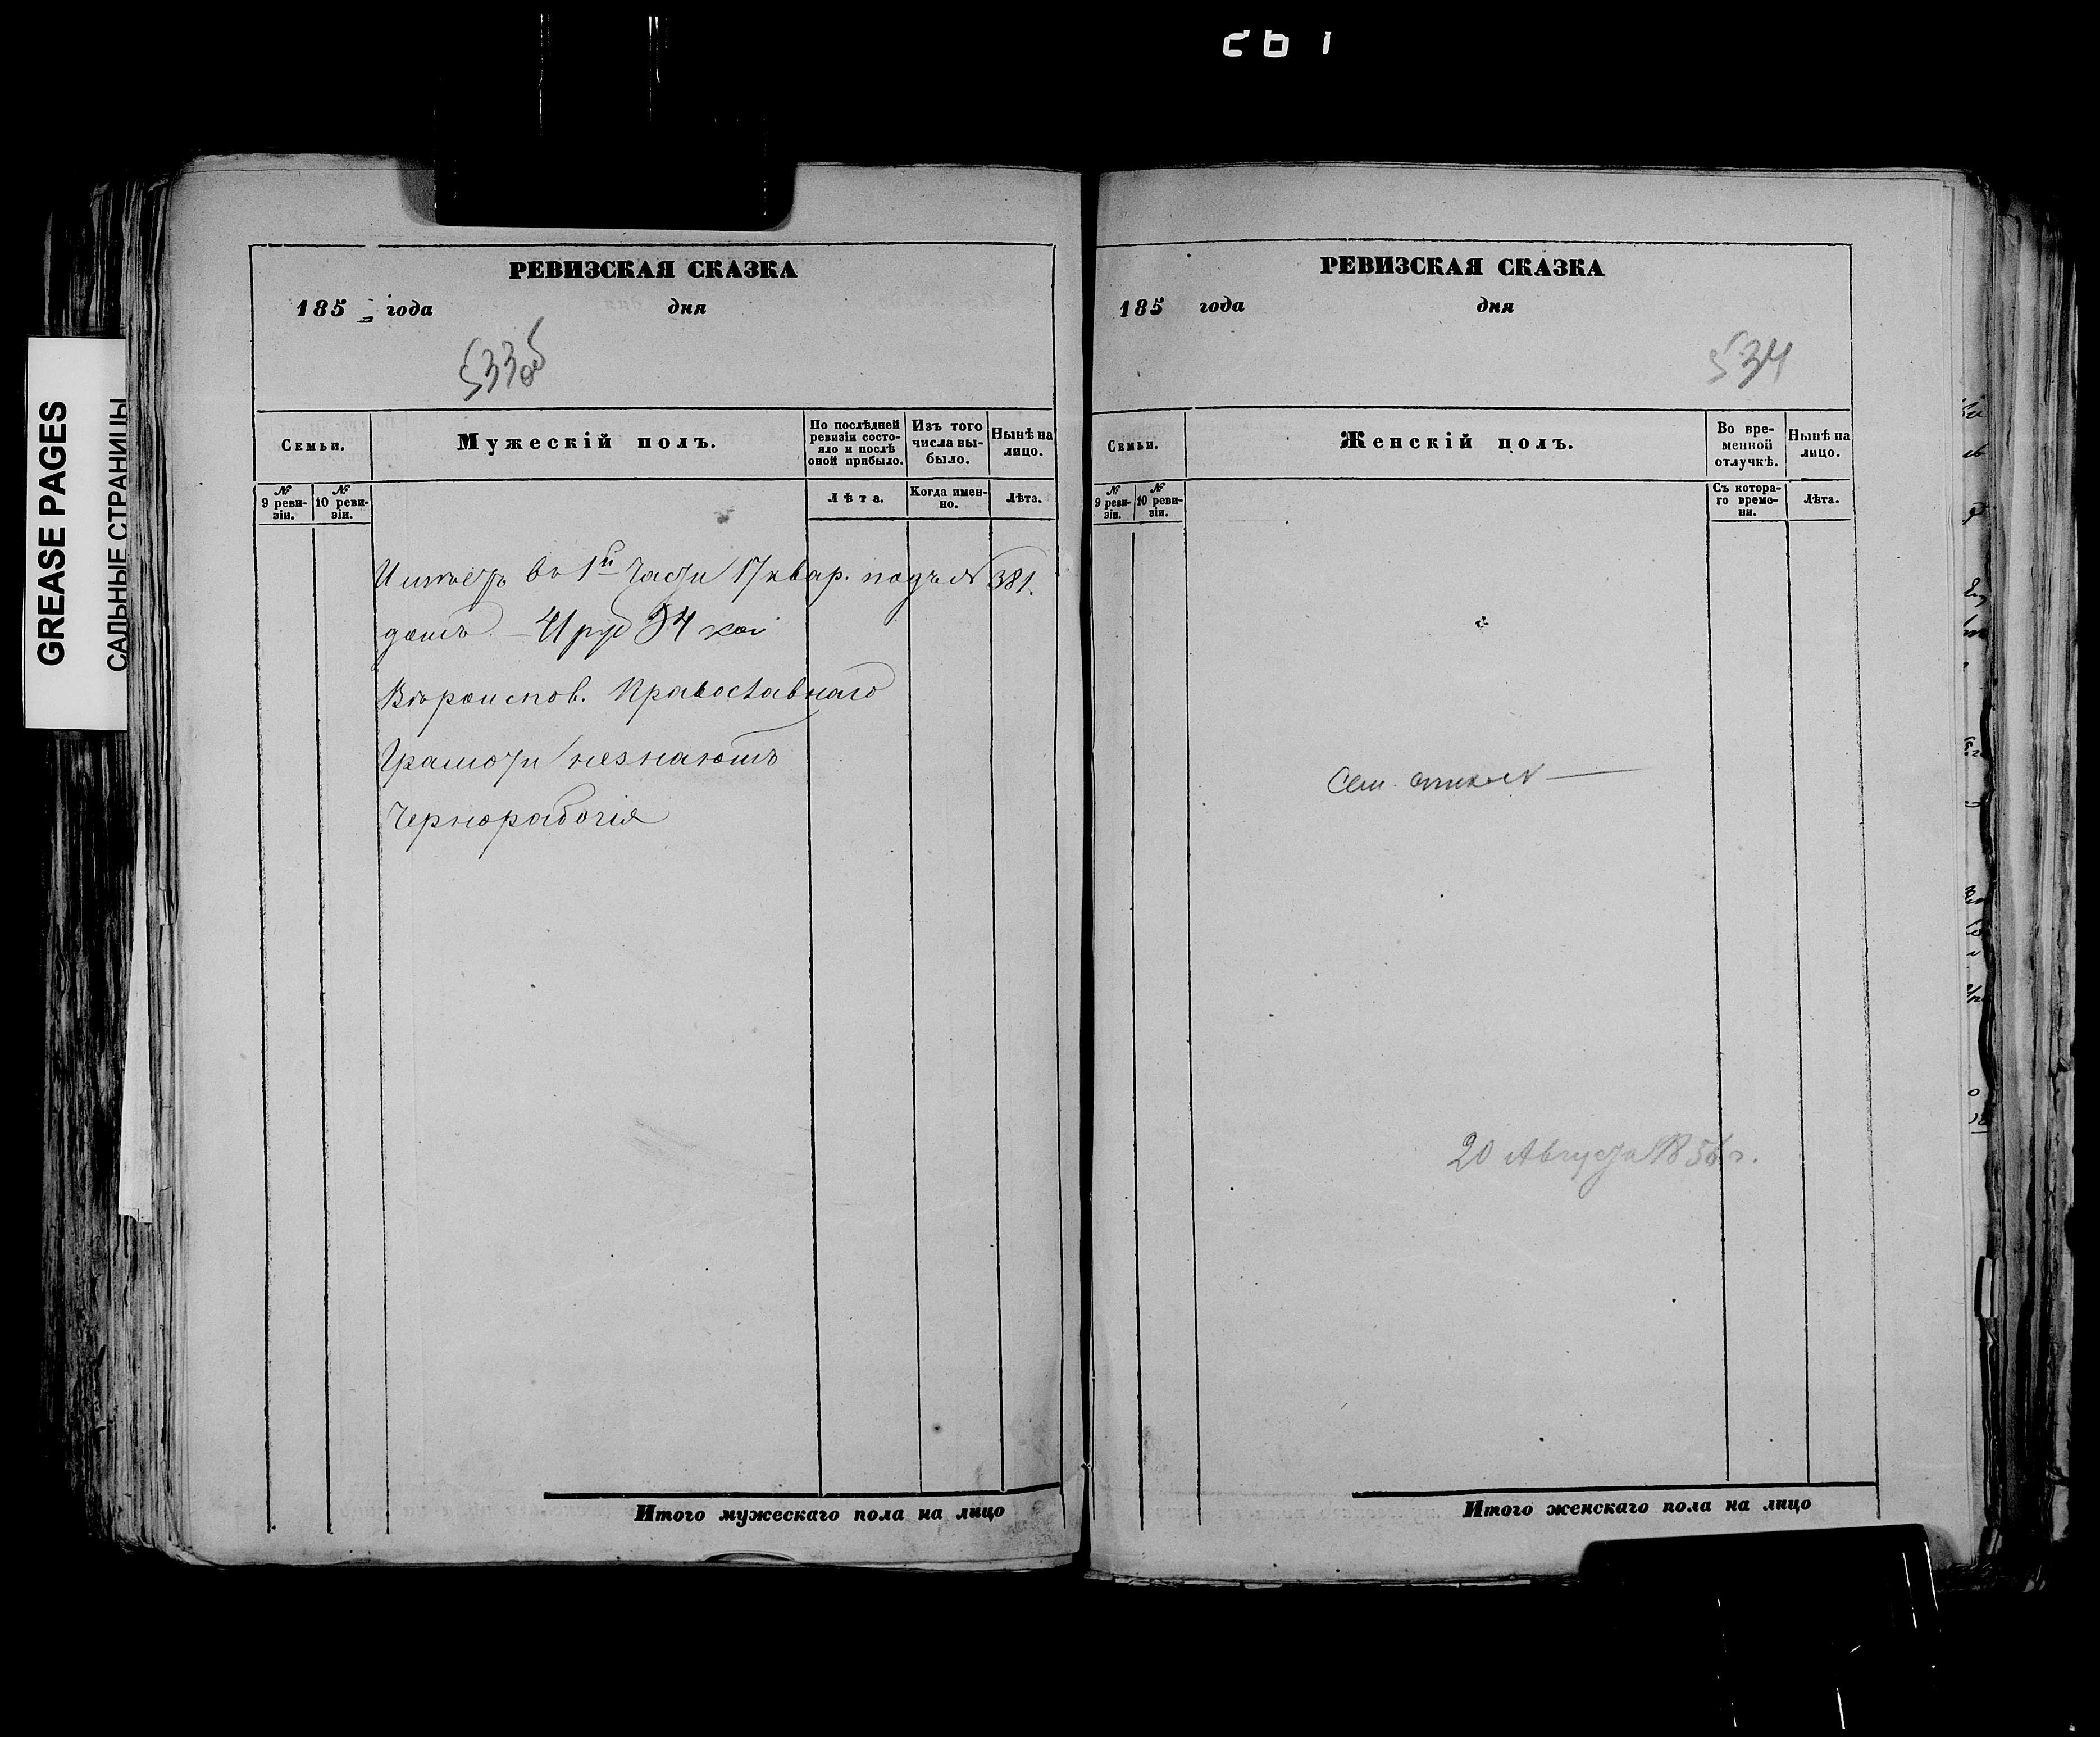 GREASE PAGES
САЛЬНЫЕ СТРАНИЦЫ
РЕВИЗСКАЯ СКАЗКА
185 года дня
533об
Семьи.
Мужескій полъ.
По послѣдней ревизіи состо-
яло и послѣ оной прибыло.
Изъ того числа вы-
было.
Нынѣ на лицо.
№ 9 реви-
зіи.
№ 10 реви-
зіи.
Лѣта.
Когда имен-
но.
Лѣта.
Имѣетъ въ 1й части 17 квар. подъ № 381.
домъ – 41 руб 34 коп
Вѣроиспов. Православнаго
Грамоти незнаютъ
Чернорабочія
Итого мужескаго пола на лицо
РЕВИЗСКАЯ СКАЗКА
185 года дня
534
Семьи.
Женскій полъ.
Во вре-
менной
отлучкѣ.
Нынѣ на лицо.
№ 9 реви-
зіи.
№ 10 реви-
зіи.
Съ котора-
го време-
ни.
Лѣта.
20 Августа 1856 г.
Итого женскаго пола на лицо